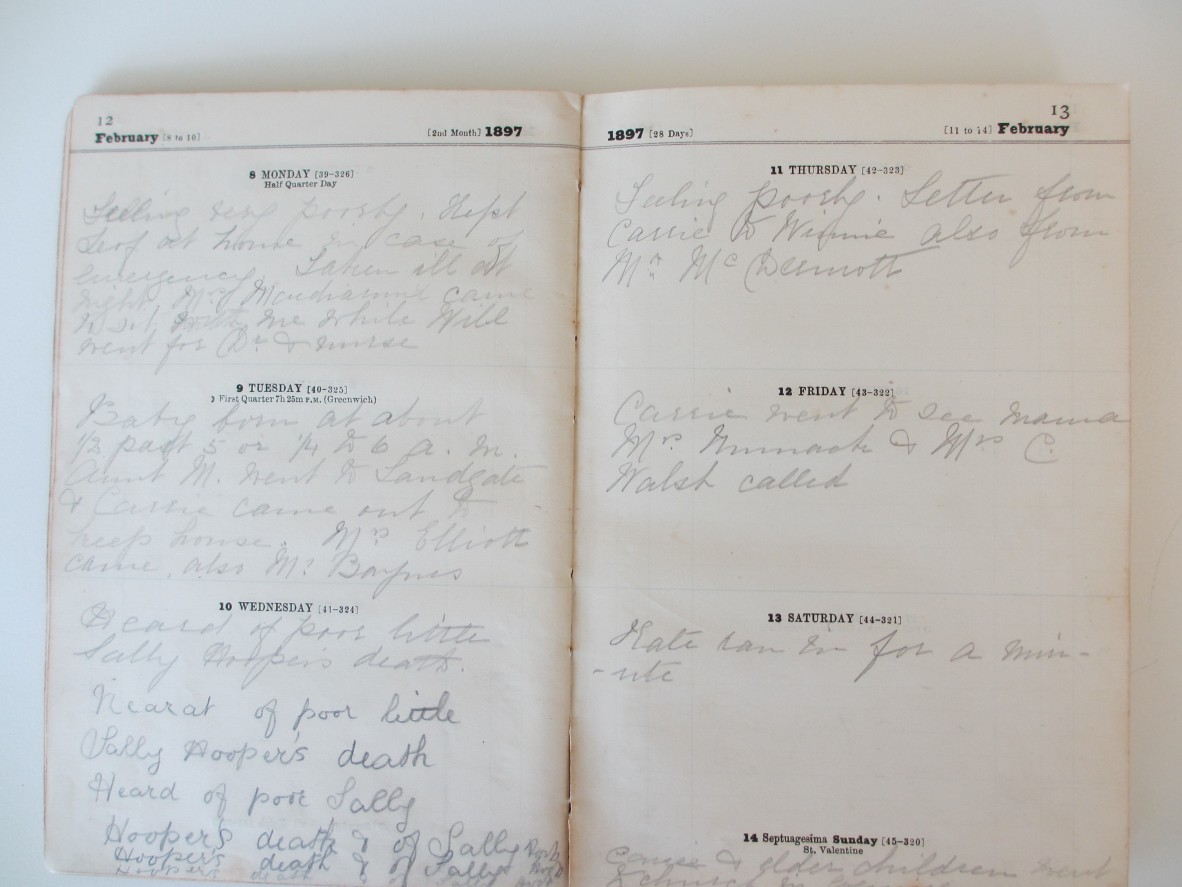 12
February [8 to 10] [2nd Month] 1897
8 MONDAY [39-326]
Half Quarter Day
Feeling very poorly. Kept
Leof at home in case of
emergency. Taken ill at
night. Mrs came
to sit with me while Will
went for Dr & nurse
9 TUESDAY [40-325]
☽ First Quarter 7h 25m P.M. (Greenwich)
Baby born at about
1/2 past 5 or 1/4 to 6 a.m.
Aunt M. went to Sandgate
& Carrie came out to
keep house. Mrs Elliott
came, also Mr Baynes
10 WEDNESDAY [41-324]
Heard of poor little
Sally Hooper's death.
Nearat of poor little
Sally Hooper's death
Heard of poor Sally
Hooper's death & of Sally
Hooper's death & of Sally
Hooper's death
13
1897 [28 Days] [11 to 14] February
11 THURSDAY [42-323]
Feeling poorly. Letter from
Carrie to Winnie also from
Mr McDermott
12 FRIDAY [43-322]
Carrie went to see mama
Mrs & Mrs C.
Walsh called
13 SATURDAY [44-321]
Kate ran in for a min-
-ute
14 Septuagesima Sunday [45-320]
St. Valentine
Carrie & elder children went
to church